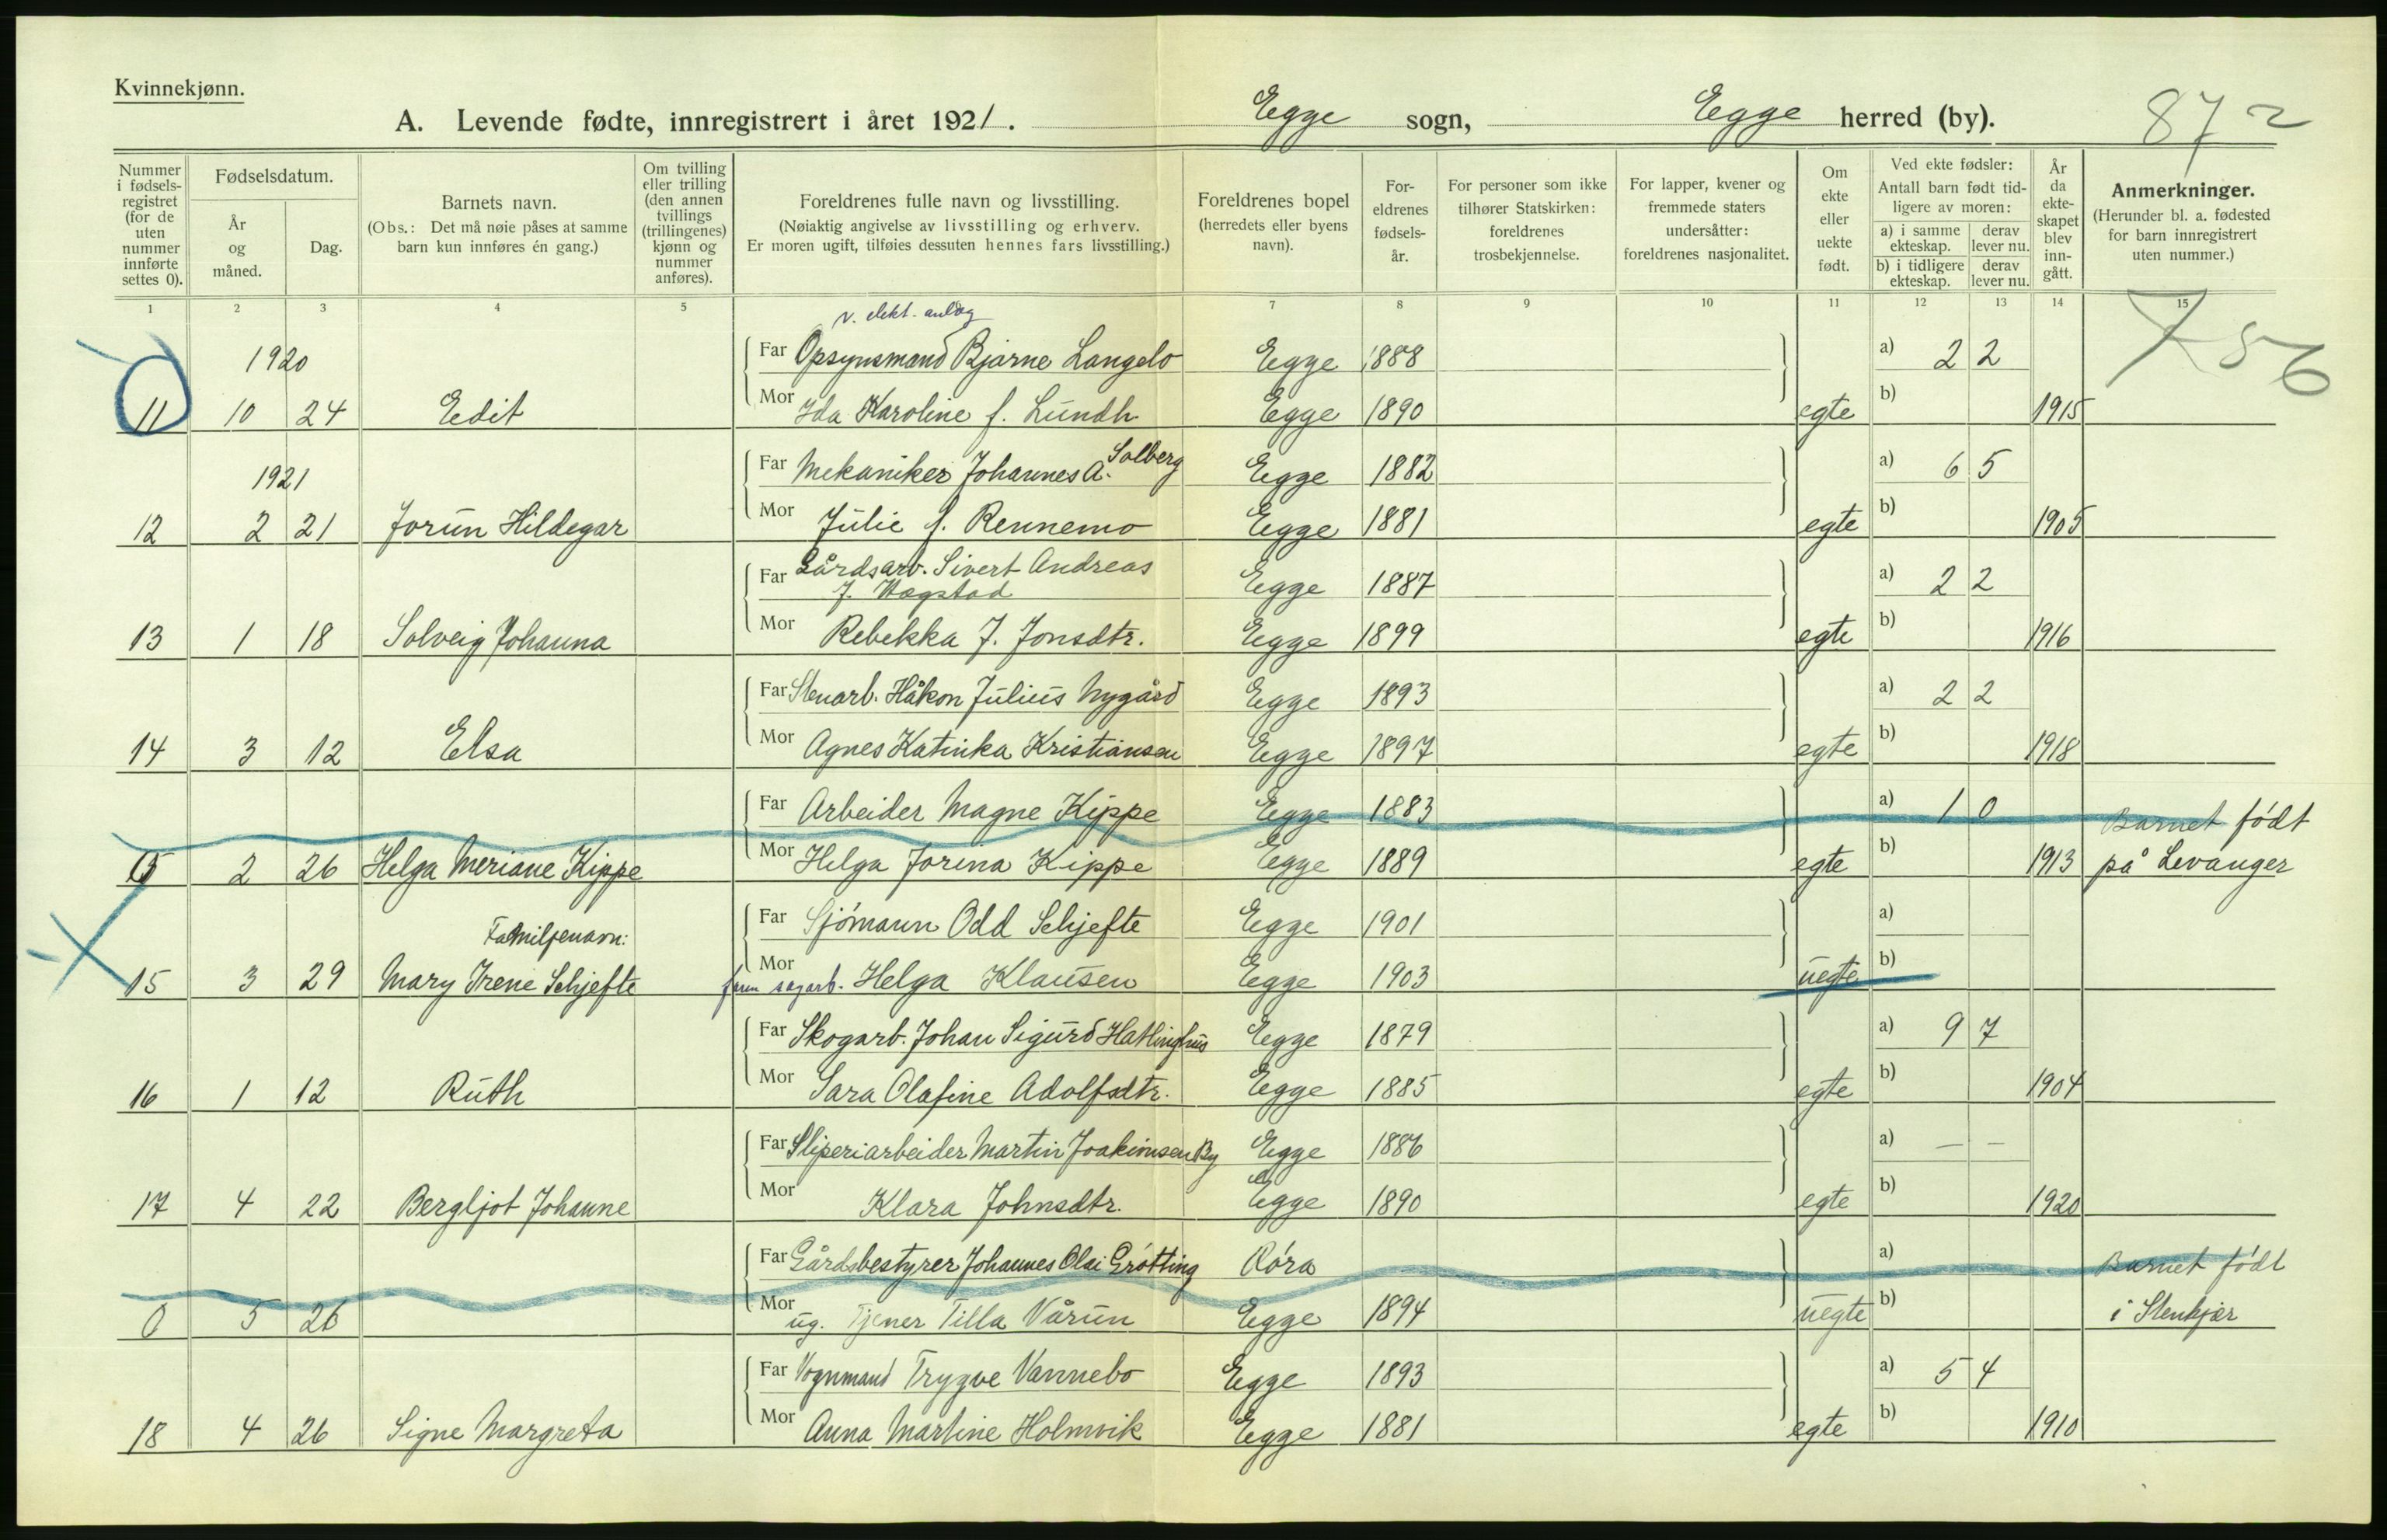 Kvinnekjønn.
A. Levende fødte, innregistrert i året 1921. Egge sogn, Egge herred (by). 872
Nummer i fødsels-registret (for de uten nummer innførte settes 0).
Fødselsdatum.
År og måned.
Dag.
Barnets navn.
(Obs.: Det må nøie påses at samme barn kun innføres én gang.)
Om tvilling eller trilling (den annen tvillings (trillingenes) kjønn og nummer anføres).
Foreldrenes fulle navn og livsstilling.
(Nøiaktig angivelse av livsstilling og erhverv.
Er moren ugift, tilføies dessuten hennes fars livsstilling.)
Foreldrenes bopel
(herredets eller byens navn).
For-eldrenes fødsels-år.
For personer som ikke tilhører Statskirken: foreldrenes trosbekjennelse.
For lapper, kvener og fremmede staters undersåtter: foreldrenes nasjonalitet.
Om ekte eller uekte født.
Ved ekte fødsler:
Antall barn født tid-ligere av moren:
a) i samme ekteskap. derav lever nu.
b) i tidligere ekteskap. derav lever nu.
År da ekte-skapet blev inn-gått.
Anmerkninger.
(Herunder bl. a. fødested for barn innregistrert uten nummer.)
1 2 3 4 5 7 8 9 10 11 12 13 14 15
v. elekt. anlæg
1920 Far Opsynsmand Bjarne Langelo Egge 1888 a) 2 2
11 10 24 Edit Mor Ida Karoline f. Lundh Egge 1890 egte b) 1915
Solberg
1921 Far Mekaniker Johannes A. Egge 1882 a) 6 5
12 2 21 Jorun Hildegar Mor Julie f. Rennemo Egge 1881 egte b) 1905
Far Gårdsarb. Sivert Andreas Egge 1887 a) 2 2
J. Wogstad
13 1 18 Solveig Johanna Mor Rebekka J. Jonsdtr. Egge 1899 egte b) 1916
Far Stenarb. Håkon Julius Nygård Egge 1893 a) 2 2
14 3 12 Elsa Mor Agnes Katinka Kristiansen Egge 1897 egte b) 1918
Far Arbeider Magne Kippe Egge 1883 a) 1 0 Barnet født
15 2 26 Helga Meriane Kippe Mor Helga Jorina Kippe Egge 1889 egte b) 1913 på Levanger
Familjenavn: Far Sjömann Odd Schjefte Egge 1901 a)
15 3 29 Mary Irene Schjefte Mor sagarb. Helga Klausen Egge 1903 uegte b)
Far Skogarb. Johan Sigurd Hatlinghus Egge 1879 a) 9 7
16 1 12 Ruth Mor Sara Olafine Adolfsdtr. Egge 1885 egte b) 1904
Far Sliperiarbeider Martin Joakimsen By Egge 1886 a) — —
17 4 22 Bergljot Johanne Mor Klara Johnsdtr. Egge 1890 egte b) 1920
Far Gårdsbestyrer Johannes Olai Grötting Röra a) Barnet født
0 5 26 Mor ug. Tjener Tilla Vårun Egge 1894 uegte b) i Stenkjær
Far Vognmand Trygve Vannebo Egge 1893 a) 5 4
18 4 26 Signe Margreta Mor Anna Martine Holmvik Egge 1881 egte b) 1910